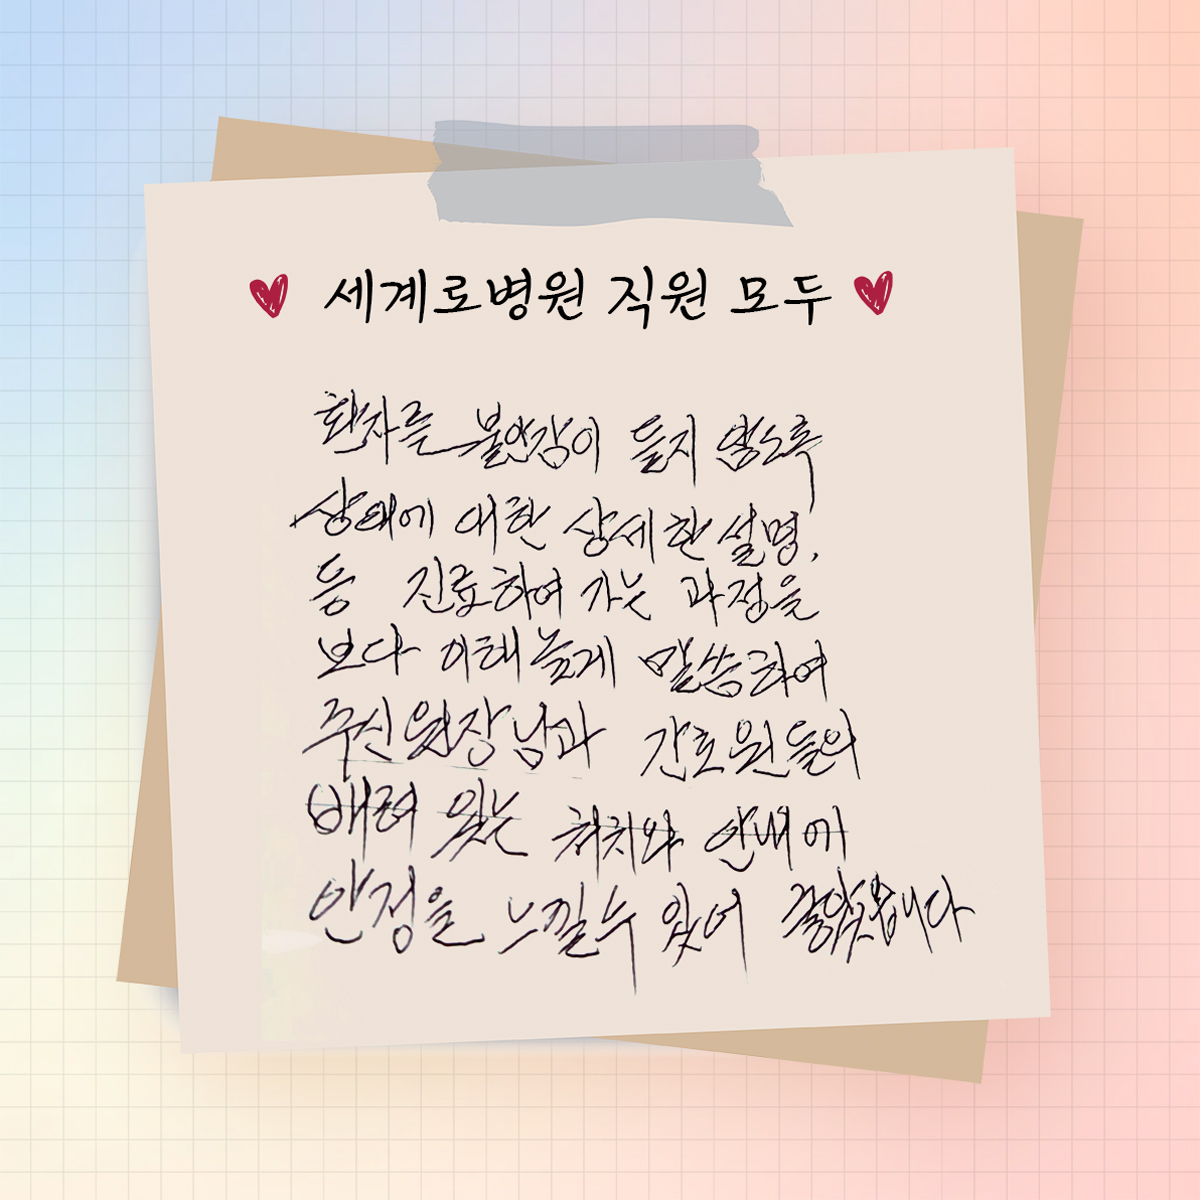 세계로병원 직원 모두
환자를 불안감이 들지 않도록
상태에 대한 상세한 설명,
등 진료하여 가는 과정을
보다 이해높게 말씀하여
주신 원장님과 간호원들의
배려 있는 처치와 안내에
안정을 느낄수 있어 좋았습니다